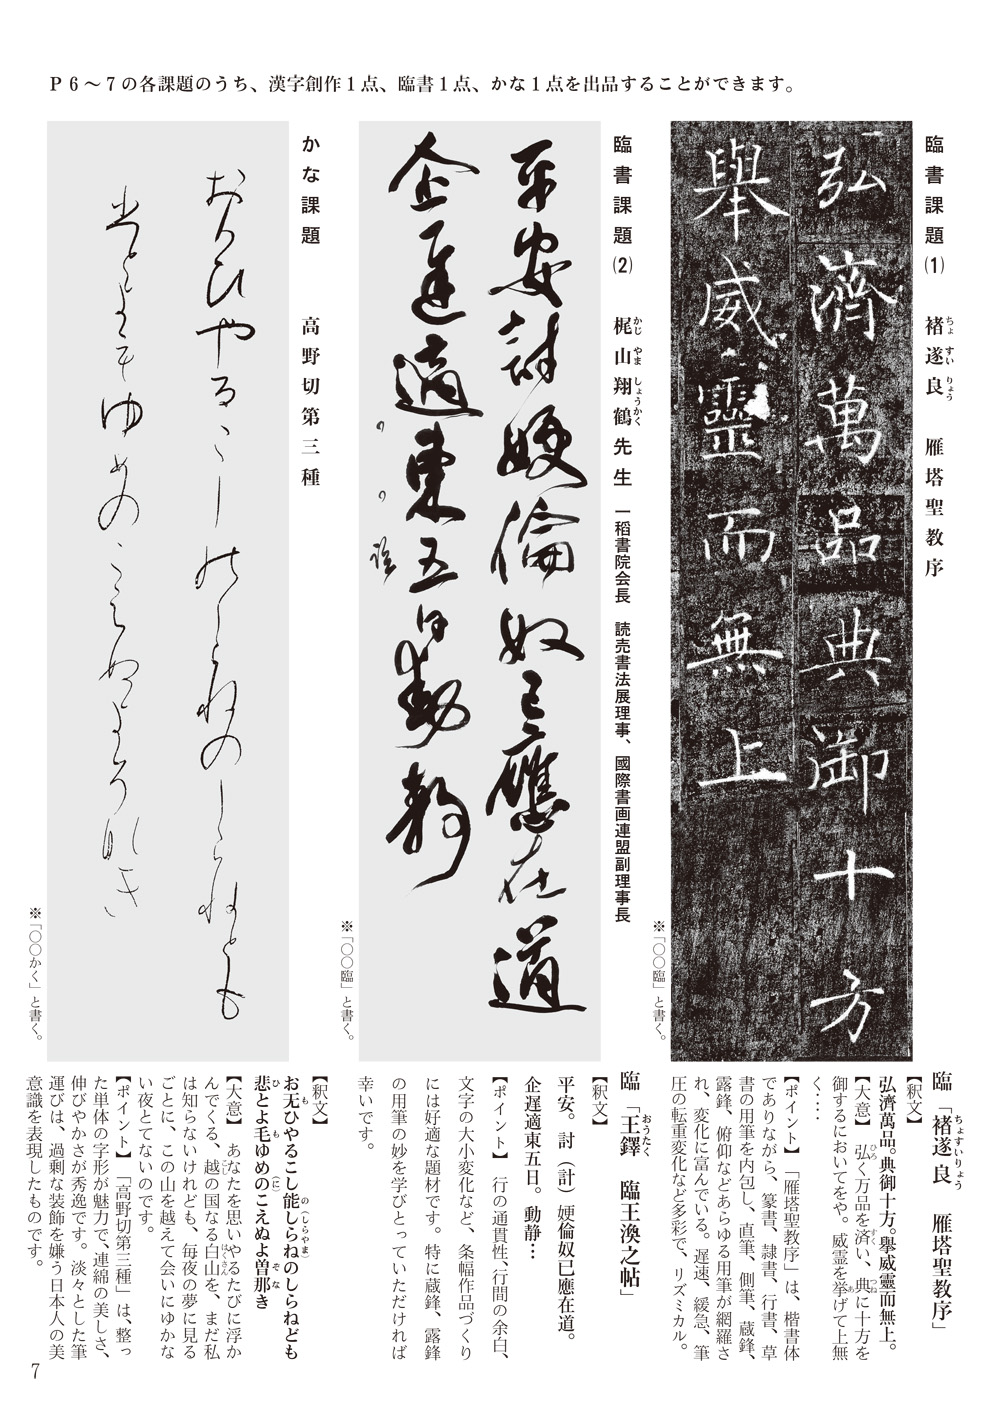 P6～7の各課題のうち、漢字創作1点、臨書1点、かな1点を出品することができます。
臨書課題(1)　褚遂良　雁塔聖教序
ちょ すい りょう
弘濟萬品典御十方
舉威靈而無上
※「○○臨」と書く。
臨「褚遂良　雁塔聖教序」
ちょすいりょう
【釈文】
弘濟萬品。典御十方。舉威靈而無上。
【大意】　弘く万品を済い、典に十方を
ひろ すく つね
御するにおいてをや。威霊を挙げて上無
あ
く‥‥
【ポイント】　「雁塔聖教序」は、楷書体
でありながら、篆書、隷書、行書、草
書の用筆を内包し、直筆、側筆、蔵鋒、
露鋒、俯仰などあらゆる用筆が網羅さ
れ、変化に富んでいる。遅速、緩急、筆
圧の転重変化など多彩で、リズミカル。
臨書課題(2)　梶山翔鶴先生　一稻書院会長　読売書法展理事、國際書画連盟副理事長
かじ やま しょうかく
平安討㛐倫奴已應在道
企遅適東五日動静
※「○○臨」と書く。
臨「王鐸　臨王渙之帖」
おうたく
【釈文】
平安。討（計）㛐倫奴已應在道。
企遅適東五日。動静…
【ポイント】　行の通貫性、行間の余白、
文字の大小変化など、条幅作品づくり
には好適な題材です。特に蔵鋒、露鋒
の用筆の妙を学びとっていただければ
幸いです。
かな課題　高野切第三種
お无ひやるこし能しらねのしらねども
悲とよ毛ゆめのこえぬよ曽那き
※「○○かく」と書く。
【釈文】
お无ひやるこし能しらねのしらねども
も の（しらやま）
悲とよ毛ゆめのこえぬよ曽那き
ひ も （に） ぞな
【大意】　あなたを思いやるたびに浮か
んでくる、越の国なる白山を、まだ私
こし はくさん
は知らないけれども、毎夜の夢に見る
ごとに、この山を越えて会いにゆかな
い夜とてないのです。
【ポイント】「高野切第三種」は、整っ
た単体の字形が魅力で、連綿の美しさ、
伸びやかさが秀逸です。淡々とした筆
運びは、過剰な装飾を嫌う日本人の美
意識を表現したものです。
7